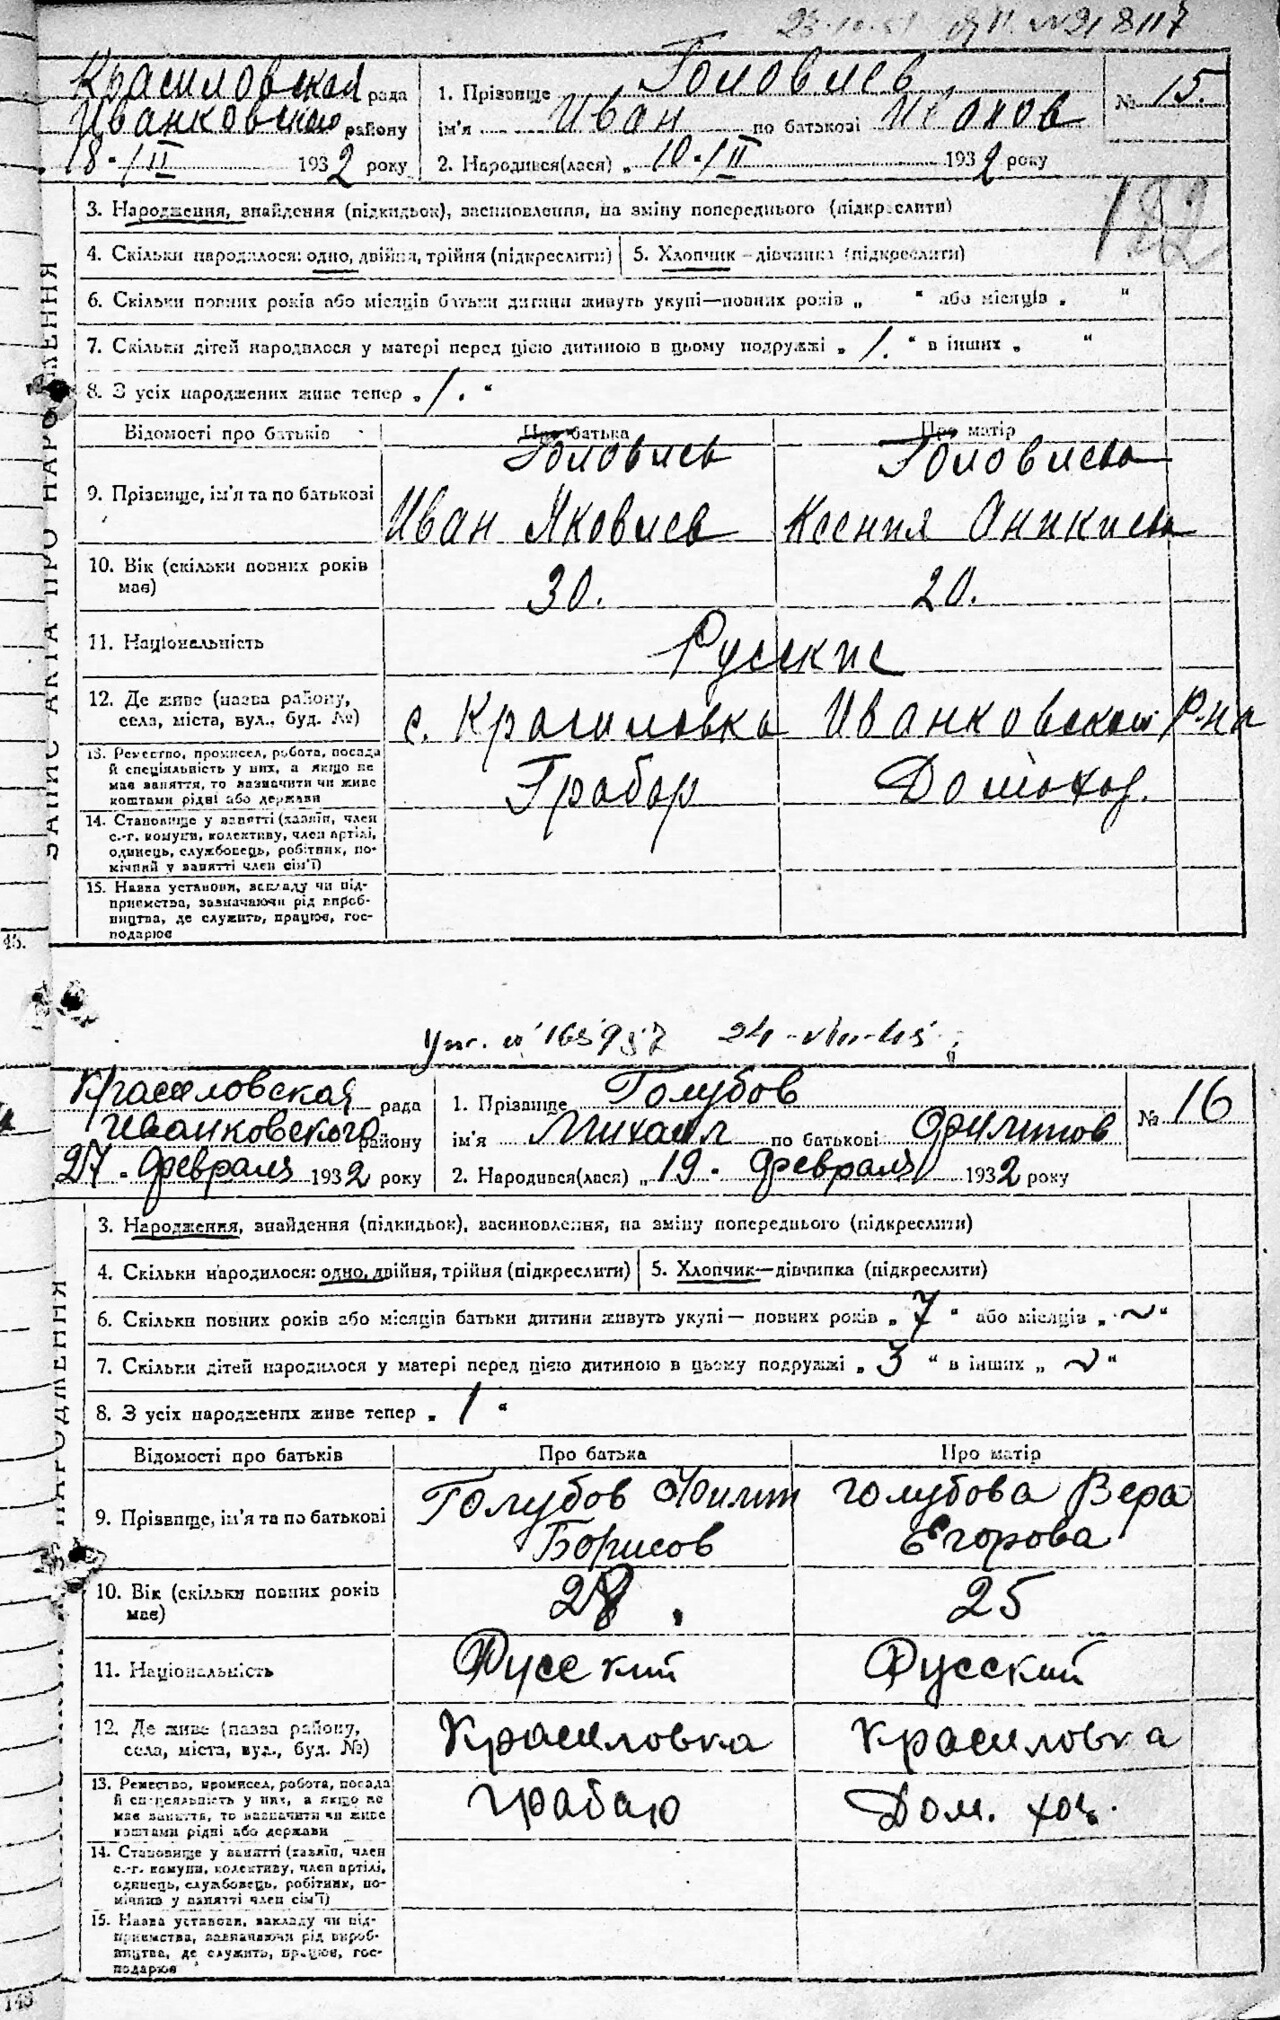 № 18117
Красиловская рада
Иванковского району
18 - / II 1932 року
1. Прізвище Головлев
ім'я Иван по батькові Иванов
2. Народився(лася) „ 10 - / II 1932 року
№ 15.
182
3. Народження, знайдення (підкидьок), засиновлення, на зміну попереднього (підкреслити)
4. Скільки народилося: одно, двійня, трійня (підкреслити) 5. Хлопчик – дівчинка (підкреслити)
6. Скільки повних років або місяців батьки дитини живуть укупі—повних років „ “ або місяців „ “
7. Скільки дітей народилося у матері перед цією дитиною в цьому подружжі „ 1. “ в інших „ “
8. З усіх народжених живе тепер „ 1. “
Відомості про батьків Про батька Про матір
9. Прізвище, ім'я та по батькові
Головлев Головлева
Иван Яковлев Ксения Аникиева
10. Вік (скільки повних років має) 30. 20.
11. Національність Русские
12. Де живе (назва району, села, міста, вул., буд. №)
с. Красиловка Иванковской р-на
13. Ремество, промисел, робота, посада
й спеціяльність у них, а якщо не
має заняття, то зазначити чи живе
коштами рідні або держави
Грабар Домохоз.
14. Становище у занятті (хазяїн, член
с.-г. комуни, колективу, член артілі,
одинець, службовець, робітник, по-
мічний у занятті член сім'ї)
15. Назва установи, закладу чи під-
приємства, зазначаючи рід вироб-
ництва, де служить, працює, гос-
подарює
ЗАПИС АКТА ПРО НАРОДЖЕННЯ
45.
165957 24-VIII-45
Красиловская рада
Иванковского району
27 - февраля 1932 року
1. Прізвище Голубов
ім'я Михаил по батькові Филипов
2. Народився(лася) „ 19 - февраля 1932 року
№ 16
3. Народження, знайдення (підкидьок), засиновлення, на зміну попереднього (підкреслити)
4. Скільки народилося: одно, двійня, трійня (підкреслити) 5. Хлопчик—дівчинка (підкреслити)
6. Скільки повних років або місяців батьки дитини живуть укупі — повних років „ 7 “ або місяців „ ~ “
7. Скільки дітей народилося у матері перед цією дитиною в цьому подружжі „ 3 “ в інших „ ~ “
8. З усіх народжених живе тепер „ 1 “
Відомості про батьків Про батька Про матір
9. Прізвище, ім'я та по батькові
Голубов Филип Голубова Вера
Борисов Егорова
10. Вік (скільки повних років має) 28. 25
11. Національність Русский Русский
12. Де живе (назва району, села, міста, вул., буд. №)
Красиловка Красиловка
13. Ремество, промисел, робота, посада
й спеціяльність у них, а якщо не
має заняття, то зазначити чи живе
коштами рідні або держави
грабар Дом. хоз.
14. Становище у занятті (хазяїн, член
с.-г. комуни, колективу, член артілі,
одинець, службовець, робітник, по-
мічник у занятті член сім'ї)
15. Назва установи, закладу чи під-
приємства, зазначаючи рід вироб-
ництва, де служить, працює, гос-
подарює
НАРОДЖЕННЯ